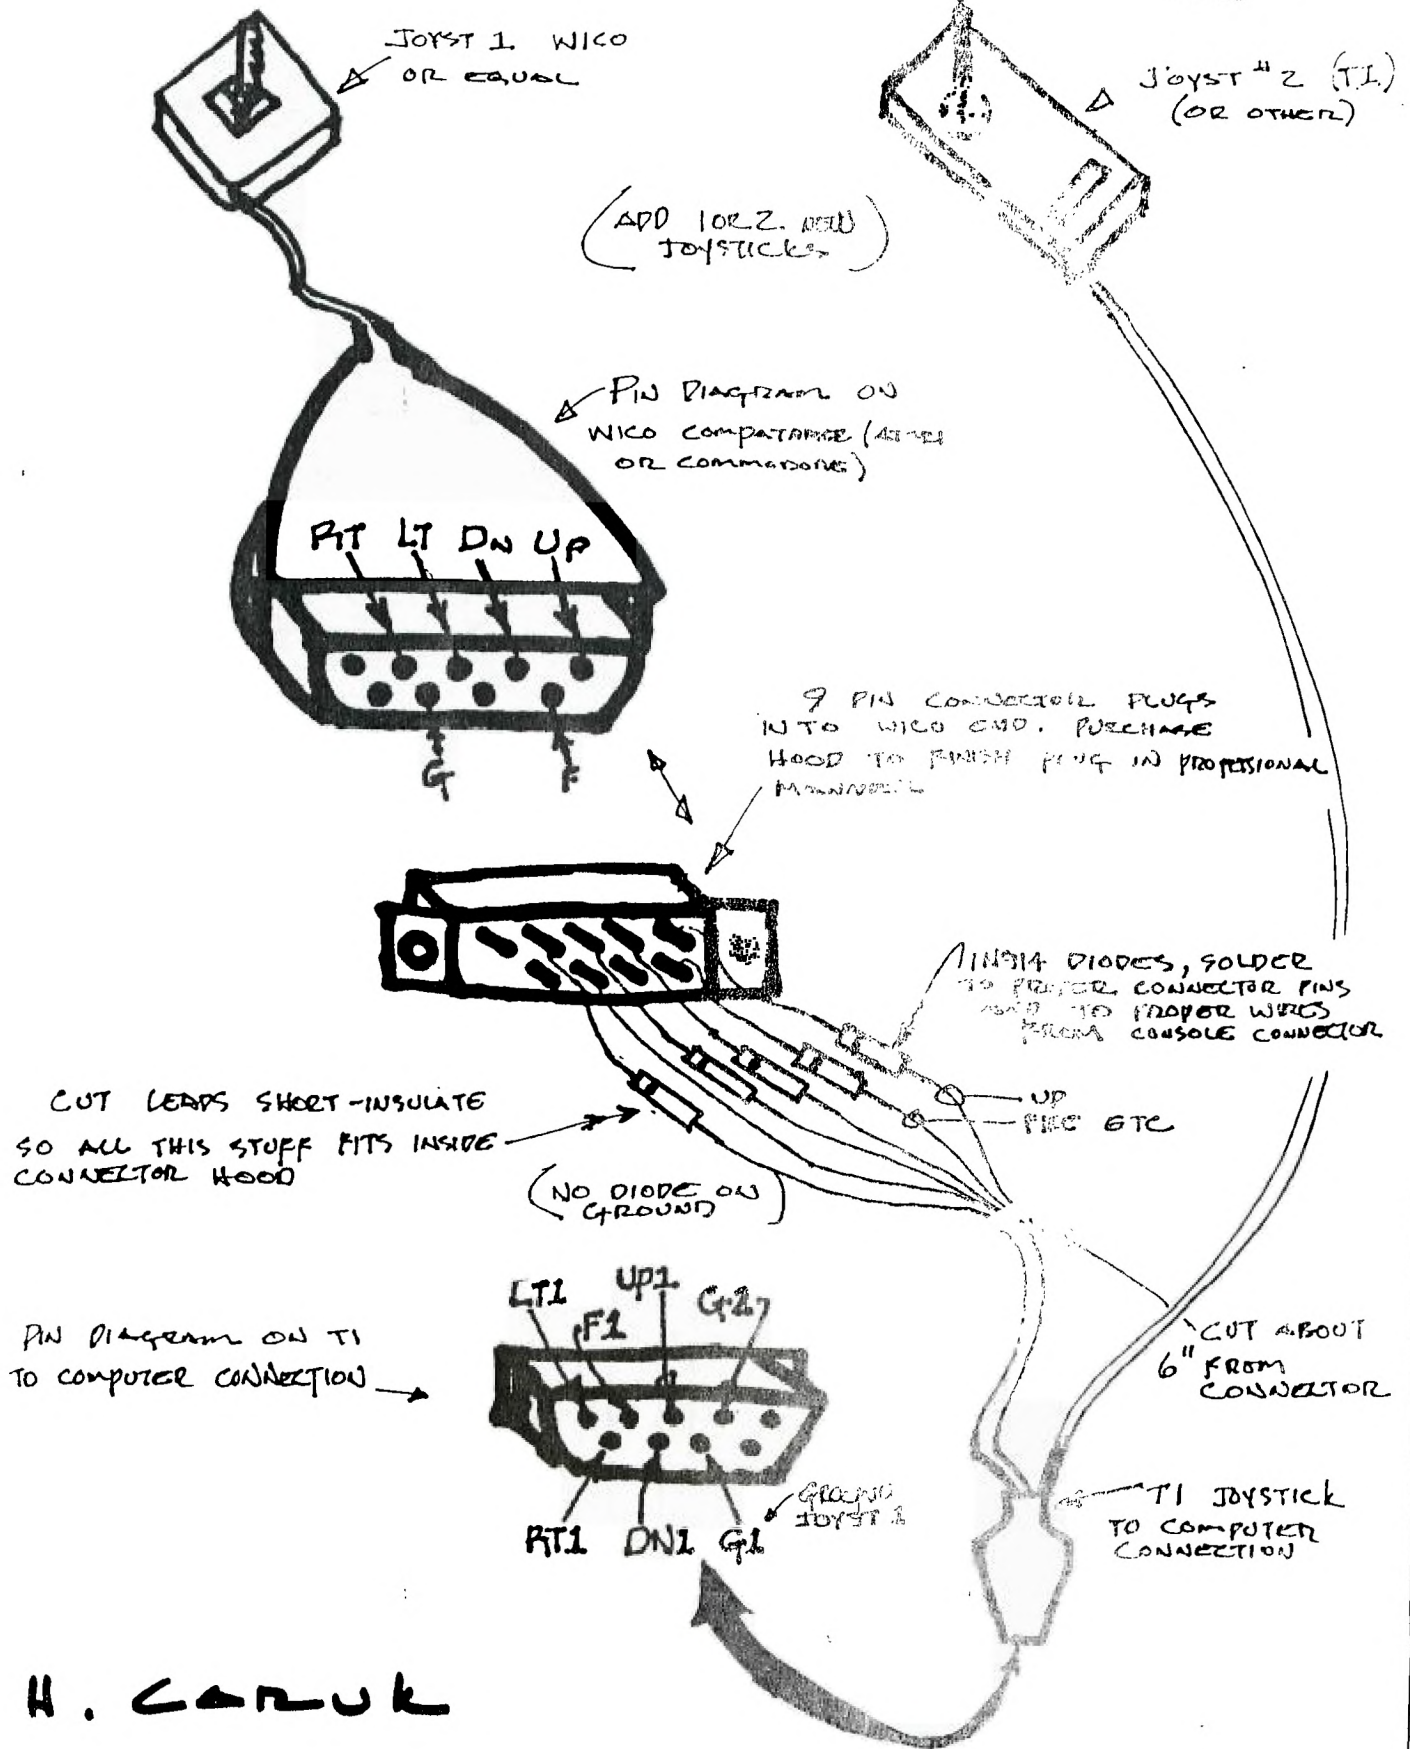 JOYST 1 WICO
OR EQUAL
JOYST #2 (T.I.)
(OR OTHER)
(ADD 1 OR 2 NEW
JOYSTICKS)
PIN DIAGRAM ON
WICO
OR COMMODORE)
RT LT DN UP
G F
9 PIN CONNECTOR PLUGS
INTO WICO END. PURCHASE
HOOD TO FINISH PLUG IN PROFESSIONAL
1N914 DIODES, SOLDER
TO PROPER CONNECTOR PINS
TO PROPER WIRES
FROM CONSOLE CONNECTOR
UP
FIRE ETC
CUT LEADS SHORT-INSULATE
SO ALL THIS STUFF FITS INSIDE
CONNECTOR HOOD
(NO DIODE ON
GROUND)
LT1 F1 UP1 G2
PIN DIAGRAM ON TI
TO COMPUTER CONNECTION
CUT ABOUT
6" FROM
CONNECTOR
RT1 DN1 G1
GROUND
JOYST 1
TI JOYSTICK
TO COMPUTER
CONNECTION
H. CARUK